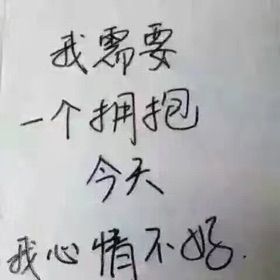 我需要
一个拥抱
今天
我心情不好.